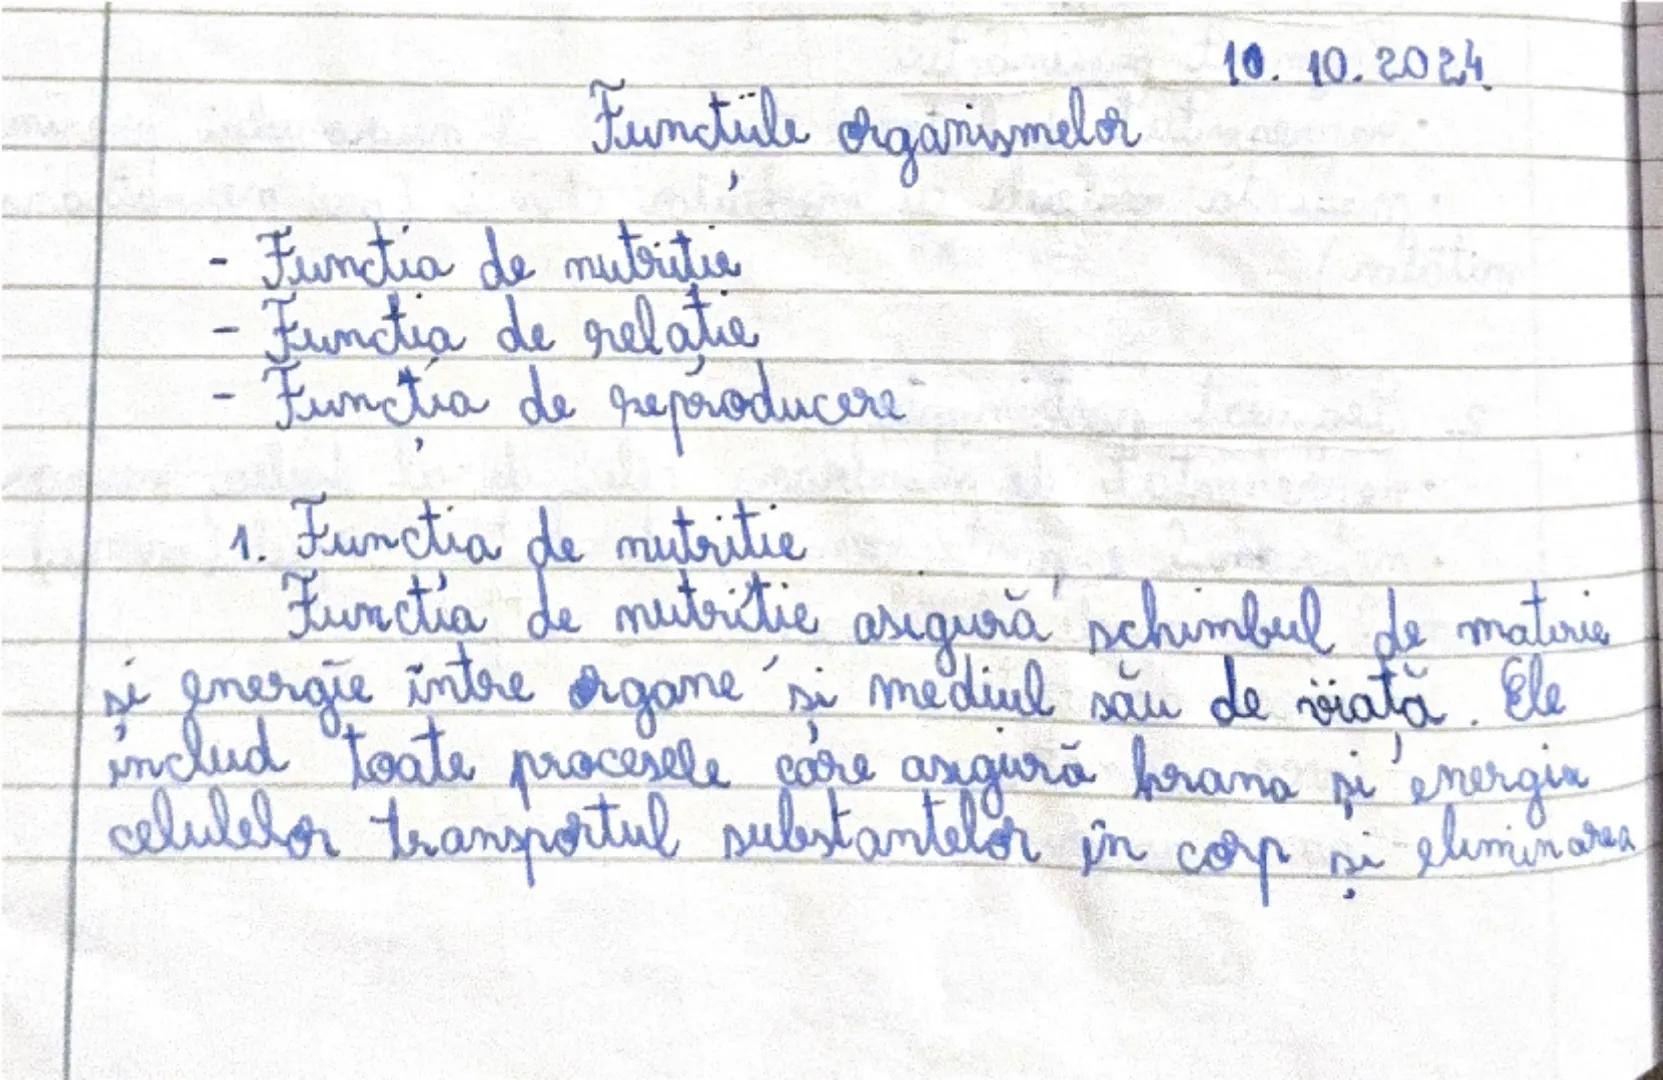 10.10.2024
Funcțiile organismelor
- Funcția de nutriție
- Funcția de relație
- Funcția de reproducere
1. Funcția de nutriție
Funcția de nutriție asigură schimbul de materie
și energie între organe și mediul său de viață. Ele
includ toate procesele care asigură hrana și energia
celulelor transportul substantelor în corp și eliminarea